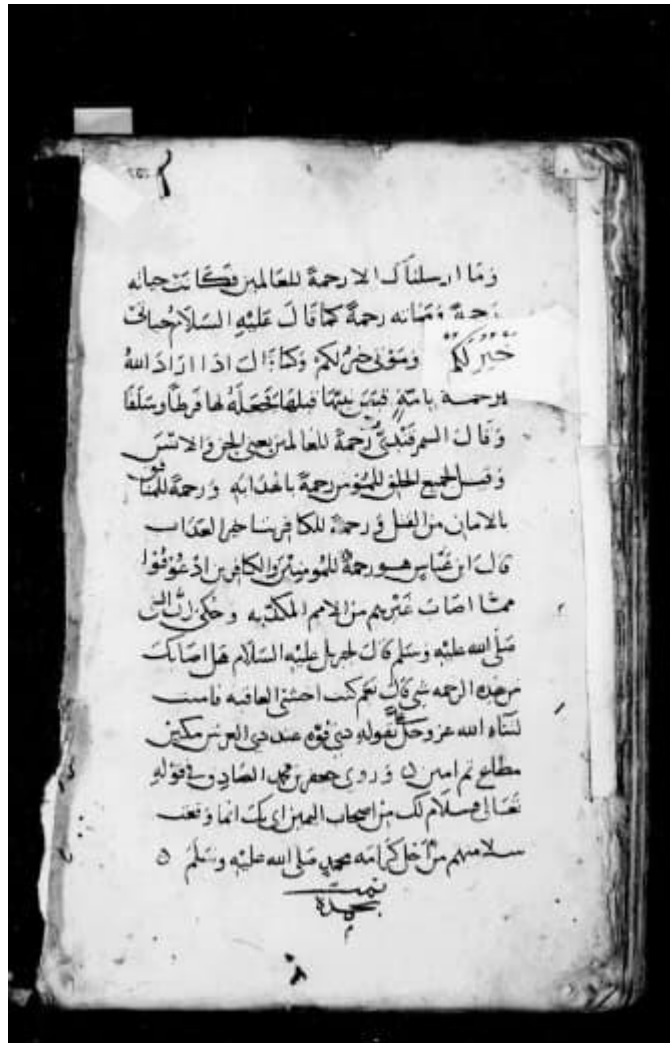 وما ارسلناك الا رحمة للعالمين فكانت حياته
رحمة ومماته رحمة كما قال عليه السلام حياتي
خير لكم وموتي خير لكم وكما قال اذا اراد الله
رحمة بامة قبض نبيها قبلها فجعله لها فرطا وسلفا
وقال السمرقندي رحمة للعالمين يعني الجن والانس
وقيل لجميع الخلق للمؤمن رحمة بالهداية ورحمة للمنافق
بالامان من القتل ورحمة للكافر بتاخير العذاب
قال ابن عباس هو رحمة للمومنين والكافرين اذ عوفوا
مما اصاب غيرهم من الامم المكذبه وحكي ان النبي
صلى الله عليه وسلم قال لجبريل عليه السلام هل اصابك
من هذه الرحمه شي قال نعم كنت اخشى العاقبه فامنت
لثناء الله عز وجل علي بقوله ذي قوة عند ذي العرش مكين
مطاع ثم امين ٥ وروي جعفر بن محمد الصادق في قوله
تعالى فسلام لك من اصحاب اليمين اي بك انما وقعت
سلامتهم من اجل كرامة محمد صلى الله عليه وسلم ٥
تمت
بحمده